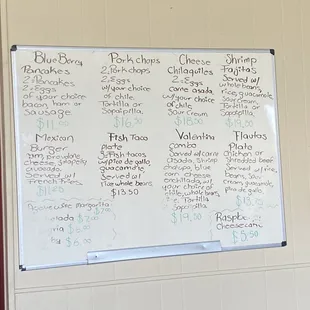 Blue Berry
Pancakes
2 Pancakes
2 Eggs
of your choice
bacon, ham or
Sausage
$11
Pork chops
2 Pork chops
2 Eggs
w/your choice
of chile
Tortilla or
Sopapilla
$16.00
Cheese
Chilaquiles
2 Eggs
carne asada
w/your choice
of chile
Sour cream
$18.00
Shrimp
Fajitas
Served w/
whole beans
rice, guacamole
Sour Cream
Tortilla or
Sopapilla
Mexican
Burger
cheese
avocado
Served w/
French Fries
Fish Taco
Plate
3 Fish tacos
w/pico de gallo
guacamole
Served w/
rice whole beans
$13.50
Valentina
combo
Served w/carne
asada, Shrimp
chaupa, blue
corn cheese
enchilada, w/
your choice of
chile, whole beans
rice, Tortilla
Sopapilla
$19.00
Flautas
Plate
Chicken or
Shredded beef
Served w/rice
beans, Sour
cream, guacamole
pico de gallo
wine margarita
$7.00
$6.00
$6.00
Raspb
Cheesecake
$5.50